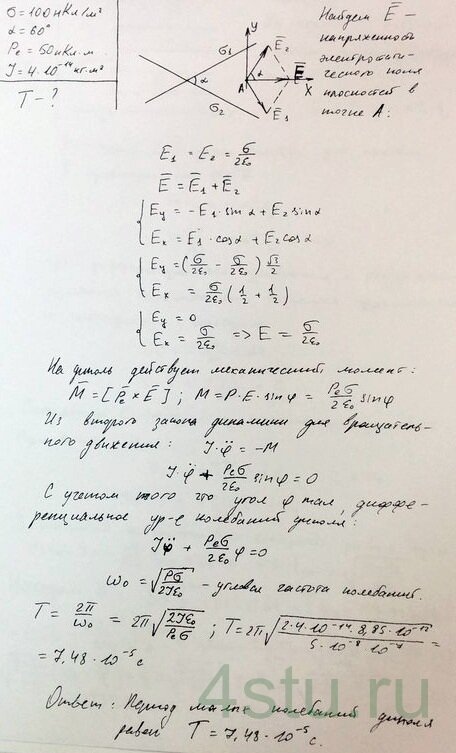 σ = 100 нКл/м²
α = 60°
Pe = 50 нКл·м
J = 4·10⁻¹⁴ кг·м²
T - ?
σ₁
α
σ₂
y
E̅₂
A
α
E̅
x
E̅₁
Найдем E̅ -
напряженность
электростати-
ческого поля
плоскостей в
точке A:
E₁ = E₂ = σ/2ε₀
E̅ = E̅₁ + E̅₂
{ Ey = -E₁·sin α + E₂ sin α
Ex = E₁·cos α + E₂ cos α
{ Ey = (σ/2ε₀ - σ/2ε₀) √3/2
Ex = σ/2ε₀ (1/2 + 1/2)
{ Ey = 0
Ex = σ/2ε₀ => E = σ/2ε₀
На диполь действует механический момент:
M̅ = [P̅e × E̅]; M = P·E·sin φ = Peσ/2ε₀ sin φ
Из второго закона динамики для вращатель-
ного движения: J·φ̈ = -M
J·φ̈ + Peσ/2ε₀ sin φ = 0
С учетом того что угол φ мал, диффе-
ренциальное ур-е колебаний диполя:
Jφ̈ + Peσ/2ε₀ φ = 0
ω₀ = √(Pσ/2Jε₀) - угловая частота колебаний.
T = 2π/ω₀ = 2π√(2Jε₀/Peσ); T = 2π√(2·4·10⁻¹⁴·8,85·10⁻¹²/5·10⁻⁸·10⁻⁷) =
= 7,48·10⁻⁵ с
Ответ: Период малых колебаний диполя
равен T = 7,48·10⁻⁵ с.
4stu.ru